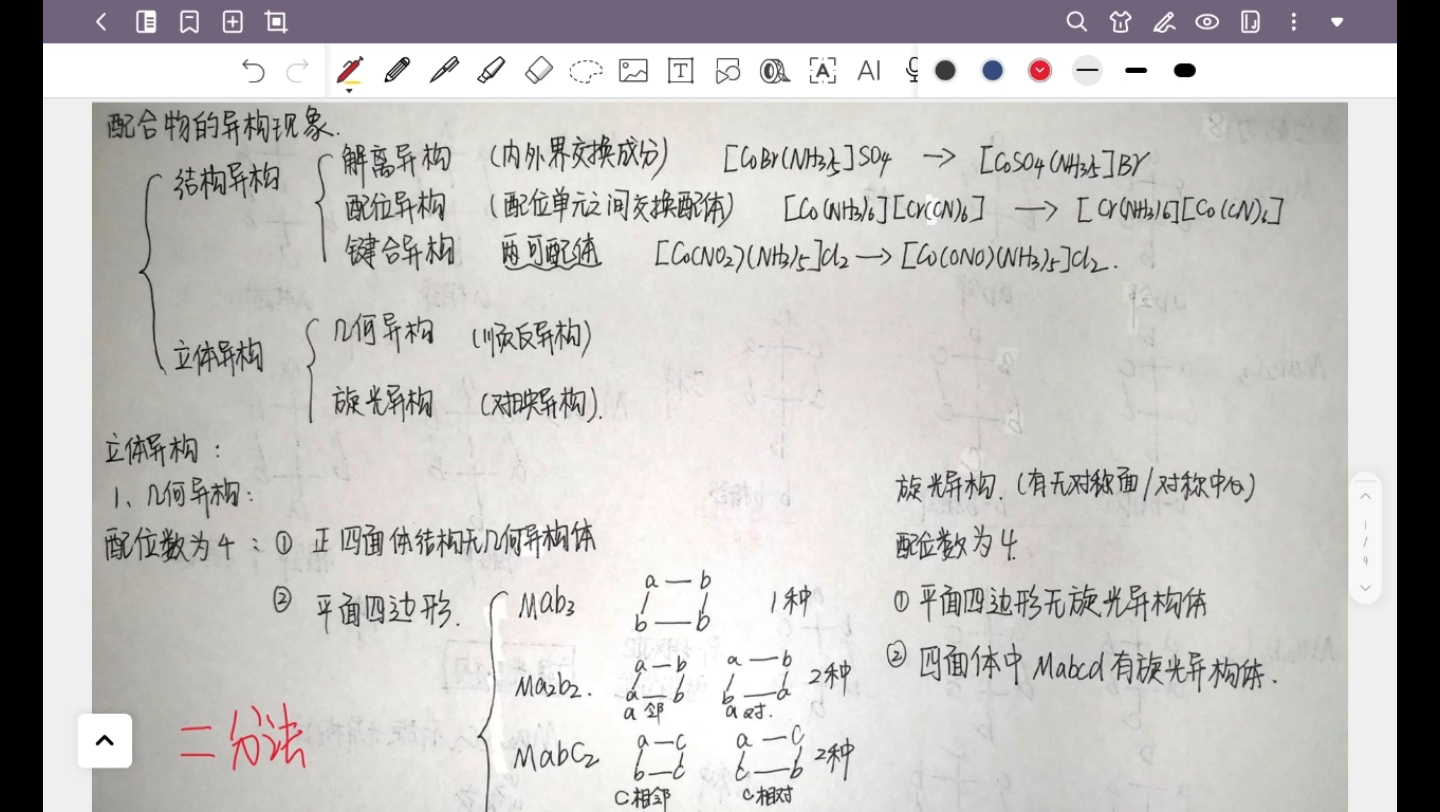 配合物的异构现象.
结构异构
解离异构 (内外界交换成分) [CoBr(NH3)5]SO4 → [CoSO4(NH3)5]Br
配位异构 (配位单元之间交换配体) [Co(NH3)6][Cr(CN)6] → [Cr(NH3)6][Co(CN)6]
键合异构 两可配体 [Co(NO2)(NH3)5]Cl2 → [Co(ONO)(NH3)5]Cl2.
立体异构
几何异构 (顺反异构)
旋光异构 (对映异构).
立体异构:
1、几何异构:
配位数为4: ① 正四面体结构无几何异构体
② 平面四边形.
Mab3
a — b
b — b
1种
Ma2b2.
a — b
a — b
a 邻
a — b
b — a
a 对.
2种
MabC2
a — c
b — c
C相邻
a — c
c — b
C相对
2种
旋光异构. (有无对称面/对称中心)
配位数为4.
① 平面四边形无旋光异构体
② 四面体中Mabcd有旋光异构体.
二分法
T
A
AI
1/9